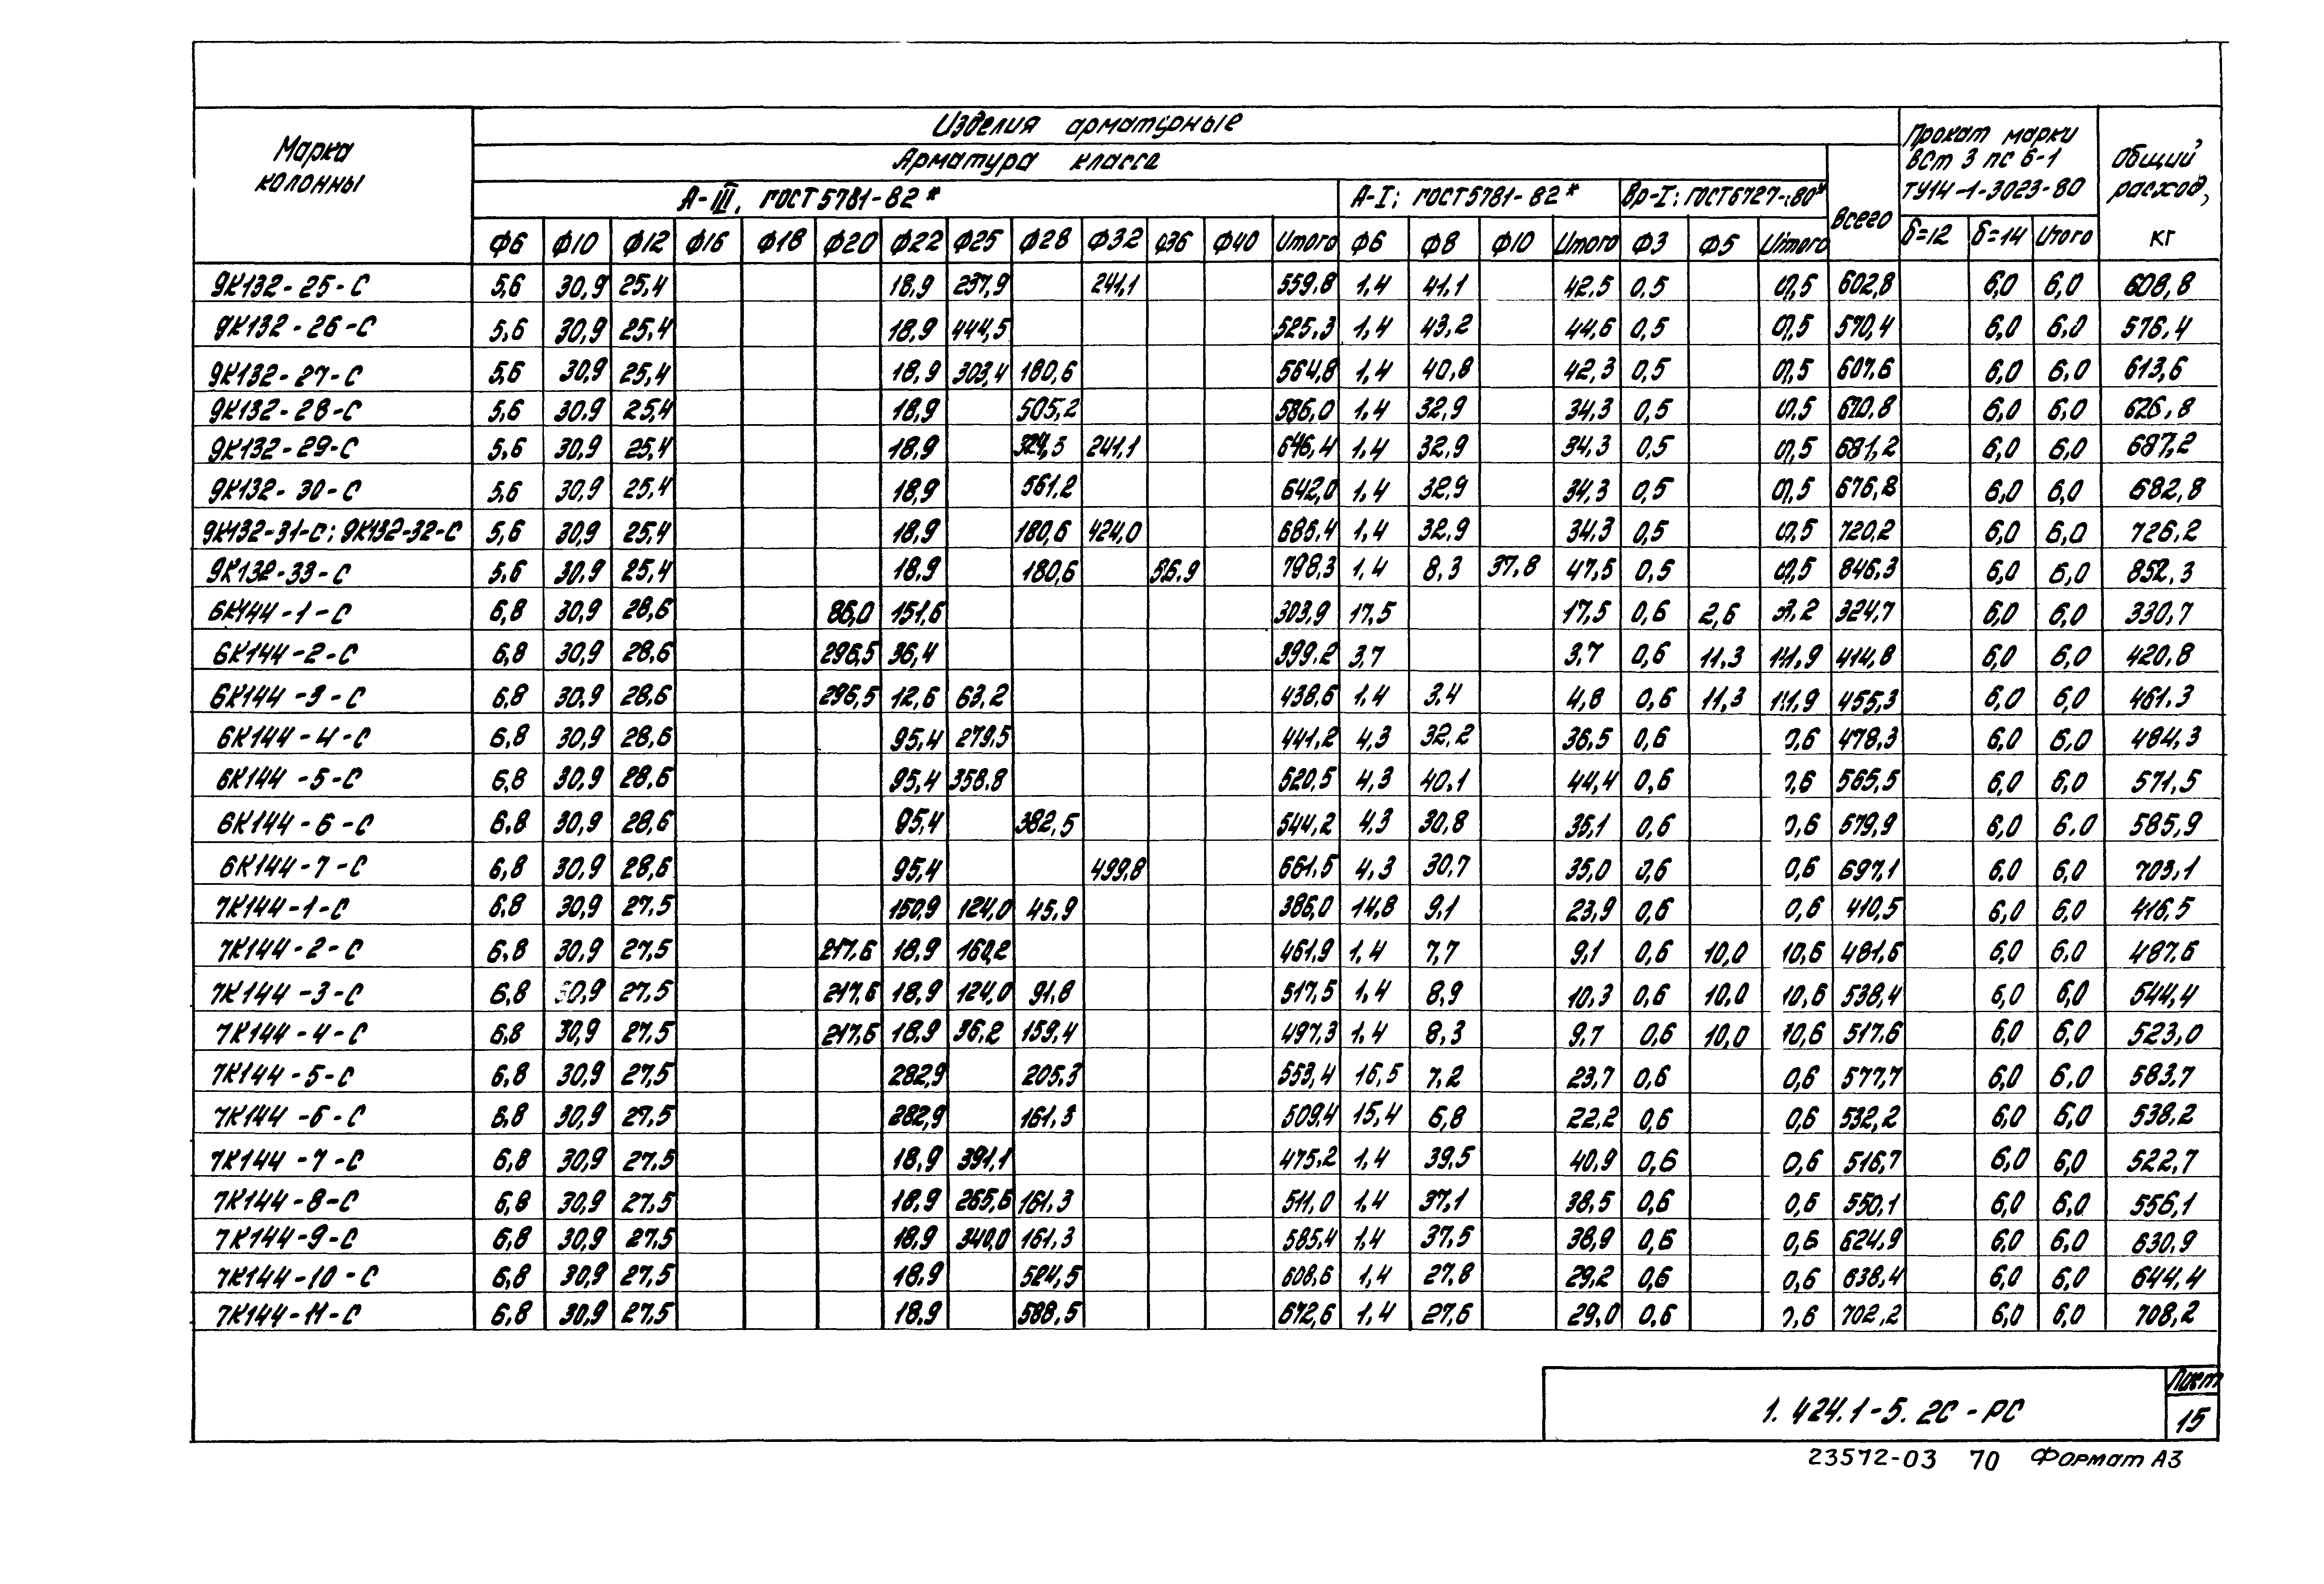 Марка колонны
Изделия арматурные
Арматура класса
А-III, ГОСТ 5781-82*
А-I; ГОСТ 5781-82*
Вр-I; ГОСТ 6727-80*
Всего
Прокат марки
ВСт 3 пс 6-1
ТУ14-1-3023-80
Общий расход, кг
Ф6 Ф10 Ф12 Ф16 Ф18 Ф20 Ф22 Ф25 Ф28 Ф32 Ф36 Ф40 Итого Ф6 Ф8 Ф10 Итого Ф3 Ф5 Итого δ=12 δ=14 Итого
9К132-25-С 5,6 30,9 25,4 18,9 237,9 241,1 559,8 1,4 41,1 42,5 0,5 0,5 602,8 6,0 6,0 608,8
9К132-26-С 5,6 30,9 25,4 18,9 444,5 525,3 1,4 43,2 44,6 0,5 0,5 570,4 6,0 6,0 576,4
9К132-27-С 5,6 30,9 25,4 18,9 303,4 180,6 564,8 1,4 40,8 42,3 0,5 0,5 607,6 6,0 6,0 613,6
9К132-28-С 5,6 30,9 25,4 18,9 505,2 586,0 1,4 32,9 34,3 0,5 0,5 620,8 6,0 6,0 626,8
9К132-29-С 5,6 30,9 25,4 18,9 324,5 241,1 646,4 1,4 32,9 34,3 0,5 0,5 681,2 6,0 6,0 687,2
9К132-30-С 5,6 30,9 25,4 18,9 561,2 642,0 1,4 32,9 34,3 0,5 0,5 676,8 6,0 6,0 682,8
9К132-31-С; 9К132-32-С 5,6 30,9 25,4 18,9 180,6 424,0 686,4 1,4 32,9 34,3 0,5 0,5 720,2 6,0 6,0 726,2
9К132-33-С 5,6 30,9 25,4 18,9 180,6 798,3 1,4 8,3 37,8 47,5 0,5 0,5 846,3 6,0 6,0 852,3
6К144-1-С 6,8 30,9 28,6 86,0 151,6 303,9 17,5 17,5 0,6 2,6 3,2 324,7 6,0 6,0 330,7
6К144-2-С 6,8 30,9 28,6 296,5 36,4 399,2 3,7 3,7 0,6 11,3 11,9 414,8 6,0 6,0 420,8
6К144-3-С 6,8 30,9 28,6 296,5 12,6 63,2 438,6 1,4 3,4 4,8 0,6 11,3 11,9 455,3 6,0 6,0 461,3
6К144-4-С 6,8 30,9 28,6 95,4 279,5 441,2 4,3 32,2 36,5 0,6 0,6 478,3 6,0 6,0 484,3
6К144-5-С 6,8 30,9 28,6 95,4 358,8 520,5 4,3 40,1 44,4 0,6 0,6 565,5 6,0 6,0 571,5
6К144-6-С 6,8 30,9 28,6 95,4 382,5 544,2 4,3 30,8 35,1 0,6 0,6 579,9 6,0 6,0 585,9
6К144-7-С 6,8 30,9 28,6 95,4 499,8 661,5 4,3 30,7 35,0 0,6 0,6 697,1 6,0 6,0 703,1
7К144-1-С 6,8 30,9 27,5 150,9 124,0 45,9 386,0 14,8 9,1 23,9 0,6 0,6 410,5 6,0 6,0 416,5
7К144-2-С 6,8 30,9 27,5 217,6 18,9 160,2 461,9 1,4 7,7 9,1 0,6 10,0 10,6 481,6 6,0 6,0 487,6
7К144-3-С 6,8 30,9 27,5 217,6 18,9 124,0 91,8 517,5 1,4 8,9 10,3 0,6 10,0 10,6 538,4 6,0 6,0 544,4
7К144-4-С 6,8 30,9 27,5 217,6 18,9 36,2 159,4 497,3 1,4 8,3 9,7 0,6 10,0 10,6 517,6 6,0 6,0 523,0
7К144-5-С 6,8 30,9 27,5 282,9 205,3 553,4 16,5 7,2 23,7 0,6 0,6 577,7 6,0 6,0 583,7
7К144-6-С 6,8 30,9 27,5 282,9 161,3 509,4 15,4 6,8 22,2 0,6 0,6 532,2 6,0 6,0 538,2
7К144-7-С 6,8 30,9 27,5 18,9 391,1 475,2 1,4 39,5 40,9 0,6 0,6 516,7 6,0 6,0 522,7
7К144-8-С 6,8 30,9 27,5 18,9 265,6 161,3 511,0 1,4 37,1 38,5 0,6 0,6 550,1 6,0 6,0 556,1
7К144-9-С 6,8 30,9 27,5 18,9 340,0 161,3 585,4 1,4 37,5 38,9 0,6 0,6 624,9 6,0 6,0 630,9
7К144-10-С 6,8 30,9 27,5 18,9 524,5 608,6 1,4 27,8 29,2 0,6 0,6 638,4 6,0 6,0 644,4
7К144-11-С 6,8 30,9 27,5 18,9 588,5 672,6 1,4 27,6 29,0 0,6 0,6 702,2 6,0 6,0 708,2
1.424.1-5.2С-РС
Лист
15
23572-03 70 Формат А3